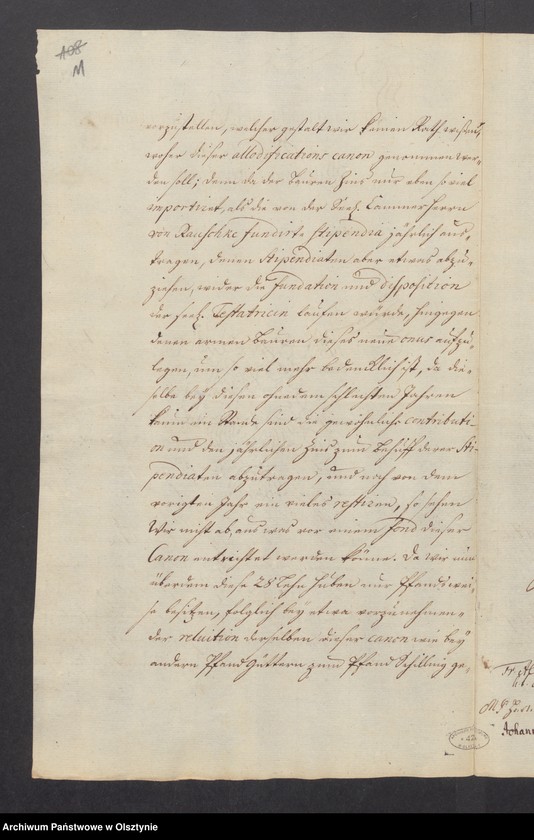 108
M
vorzustellen, welcher gestalt wir keinen Rath wißen,
woher dieser allodifications canon genommen wer-
den soll; denn da der Bauren Zins nur eben so viel
importiret, als die von der Seel. Cammerherrin
von Rauschke fundirte Stipendia jährlich aus-
tragen, denen Stipendiaten aber etwas abzu-
ziehen, wider die fundation und disposition
der seel. Testatricin laufen würde, hingegen
denen armen Bauren dieses neue onus aufzu-
legen, um so viel mehr bedencklich ist, da die-
selbe bey diesen ohnedem schlechten Jahren
kaum im Stande sind die gewöhnliche contributi-
on und den jährlichen Zins zum Behuff derer Sti-
pendiaten abzutragen, und noch von dem
vorigten Jahr ein vieles restiren, so sehen
Wir nicht ab, aus was vor einem Fond dieser
Canon entrichtet werden könne. Da wir nun
überdem diese 28 Lehn Huben nur Pfandswei-
se besitzen, folglich bey etwa vorzunehmen-
der reluition derselben dieser canon wie bey
andern Pfand Güttern zum Pfand Schilling ge-
Archiwum Państwowe w Olsztynie